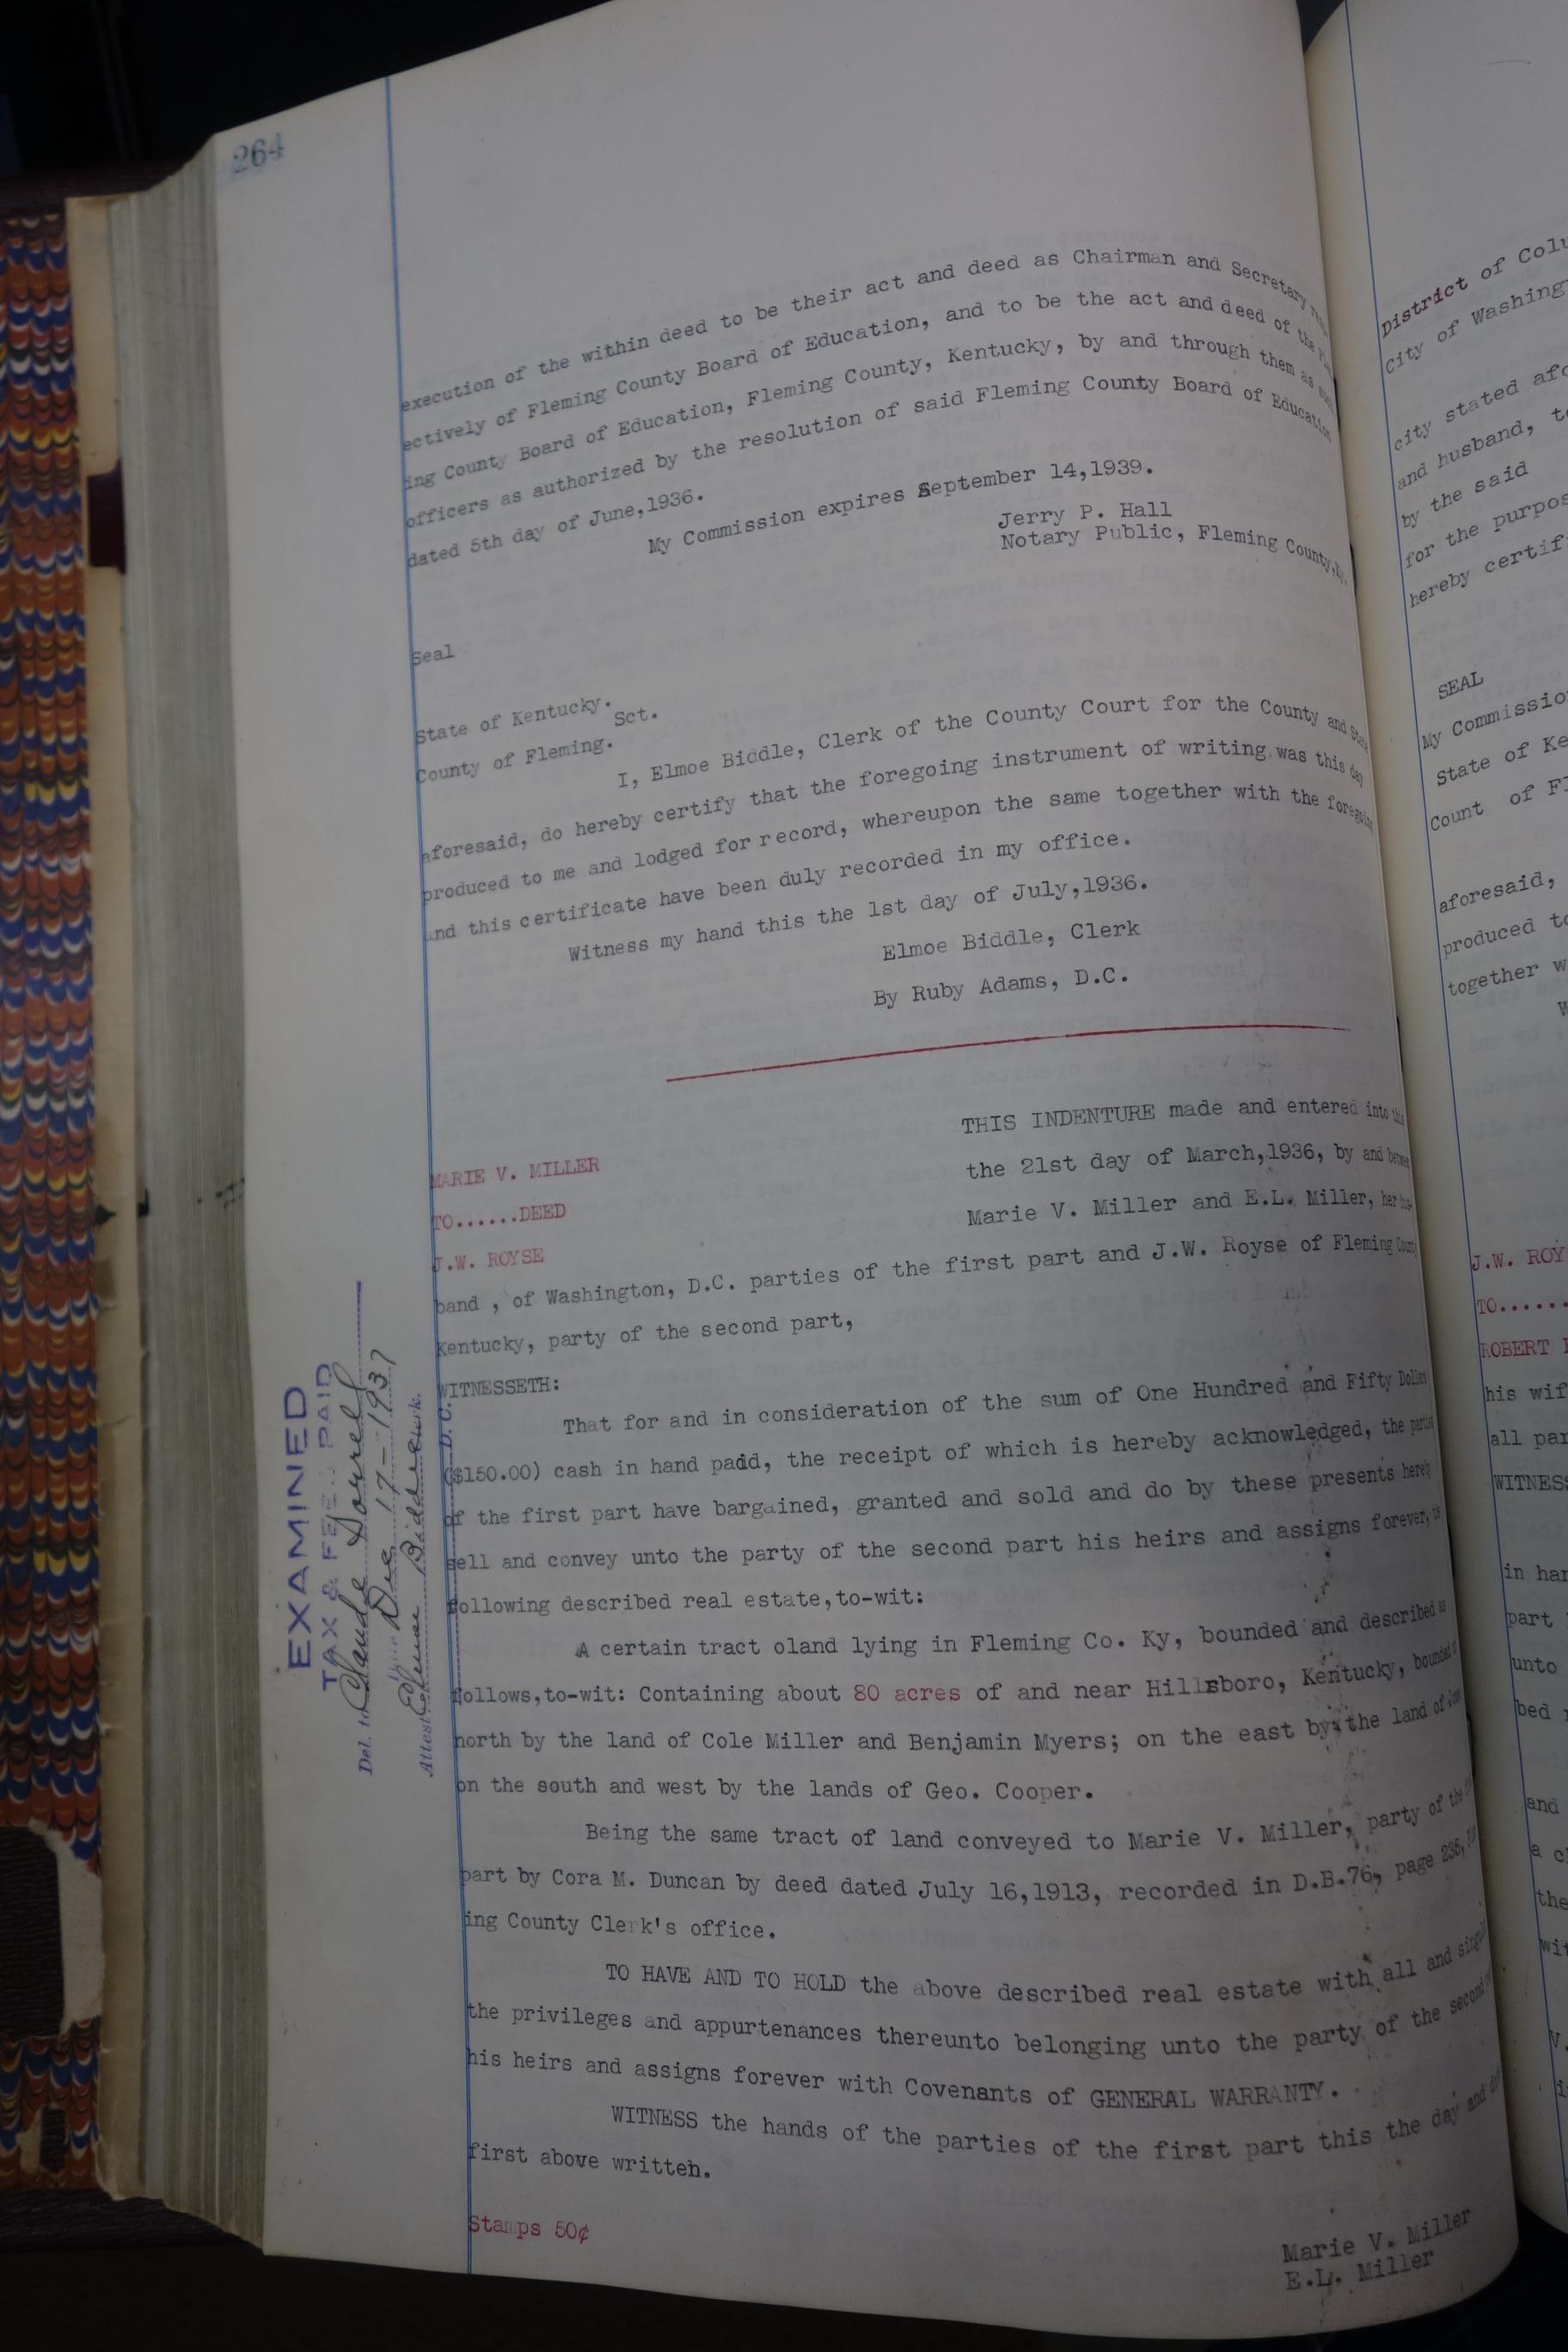 264
execution of the within deed to be their act and deed as Chairman and Secretary
ectively of Fleming County Board of Education, and to be the act and deed of the
ing County Board of Education, Fleming County, Kentucky, by and through them as
officers as authorized by the resolution of said Fleming County Board of Education
dated 5th day of June,1936.
My Commission expires September 14,1939.
Jerry P. Hall
Notary Public, Fleming County,Ky.
Seal
State of Kentucky.
Sct.
County of Fleming.
I, Elmoe Biddle, Clerk of the County Court for the County and State
aforesaid, do hereby certify that the foregoing instrument of writing was this day
produced to me and lodged for record, whereupon the same together with the foregoing
and this certificate have been duly recorded in my office.
Witness my hand this the 1st day of July,1936.
Elmoe Biddle, Clerk
By Ruby Adams, D.C.
MARIE V. MILLER
TO......DEED
J.W. ROYSE
THIS INDENTURE made and entered into this
the 21st day of March,1936, by and between
Marie V. Miller and E.L. Miller, her hus-
band , of Washington, D.C. parties of the first part and J.W. Royse of Fleming County
Kentucky, party of the second part,
WITNESSETH:
That for and in consideration of the sum of One Hundred and Fifty Dollars
($150.00) cash in hand paid, the receipt of which is hereby acknowledged, the parties
of the first part have bargained, granted and sold and do by these presents hereby
sell and convey unto the party of the second part his heirs and assigns forever, the
following described real estate,to-wit:
A certain tract oland lying in Fleming Co. Ky, bounded and described as
follows,to-wit: Containing about 80 acres of and near Hillsboro, Kentucky, bounded
north by the land of Cole Miller and Benjamin Myers; on the east by the land of
on the south and west by the lands of Geo. Cooper.
Being the same tract of land conveyed to Marie V. Miller, party of the
part by Cora M. Duncan by deed dated July 16,1913, recorded in D.B.76, page 235,
ing County Clerk's office.
TO HAVE AND TO HOLD the above described real estate with all and
the privileges and appurtenances thereunto belonging unto the party of the second
his heirs and assigns forever with Covenants of GENERAL WARRANTY.
WITNESS the hands of the parties of the first part this the day and date
first above written.
Stamps 50¢
Marie V. Miller
E.L. Miller
EXAMINED
TAX & FEE PAID
Del. to Claude Sorrel
Dec 17-1937
Attest: Elmoe Biddle Clerk.
D.C.
District of
City of
city stated
and husband,
by the said
for the
hereby
SEAL
My
State of
Count of
aforesaid,
produced
together
J.W.
TO......
ROBERT
his
all
in
part
unto
bed
and
a
the